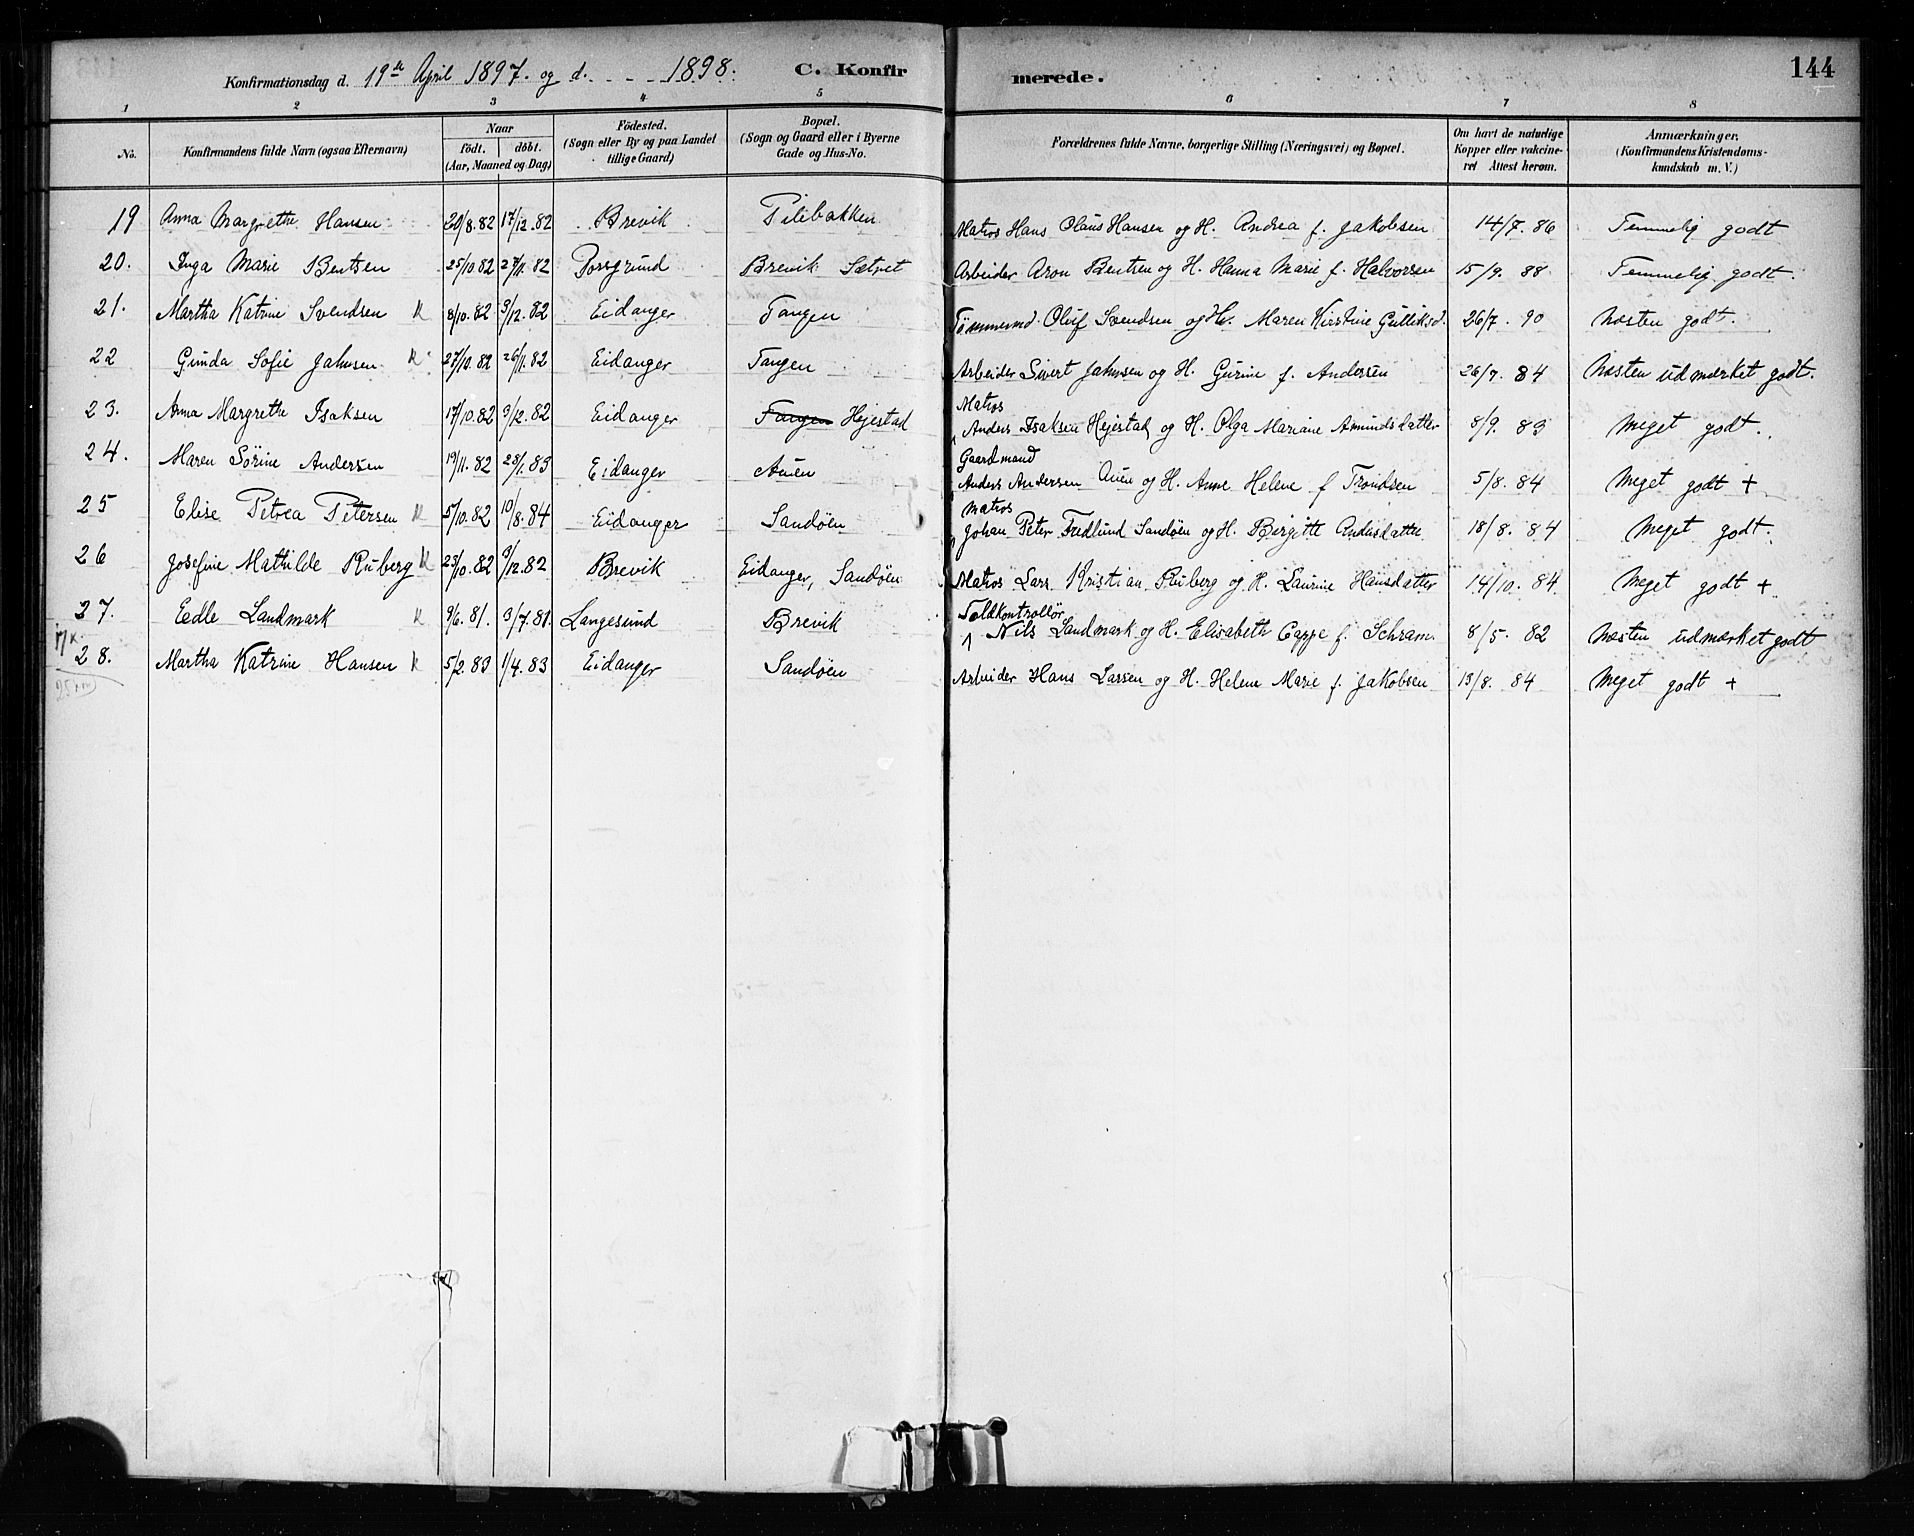 144
Konfirmationsdag d. 19de April 1897. og d. - - - - 1898. C. Konfirmerede.
1 2 3 4 5 6 7 8
No. Konfirmandens fulde Navn (ogsaa Efternavn) Naar födt. döbt. (Aar, Maaned og Dag) Födested. (Sogn eller By og paa Landet tillige Gaard) Bopæl. (Sogn og Gaard eller i Byerne Gade og Hus-No. Forældrenes fulde Navne, borgerlige Stilling (Næringsvei) og Bopæl. Om havt de naturlige Kopper eller vakcineret Attest herom. Anmærkninger. (Konfirmandens Kristendomskundskab m. V.)
19 Anna Margrethe Hansen 20/8.82 17/12.82 Brevik Pilebakken Matros Hans Olaus Hansen og H. Andrea f. Jakobsen 14/7. 86 Temmelig godt
20. Inga Marie Bentsen 25/10.82 27/11.82 Porsgrund Brevik Sætret Arbeider Aron Bentsen og H. Hanna Marie f. Halvorsen 15/9. 88 Temmelig godt.
21. Martha Katrine Svendsen K 8/10.82 3/12.82 Eidanger Tangen Tömmermd. Oluf Svendsen og H. Maren Kirstine Gulliksd. 26/7. 90 Næsten godt.
22 Gunda Sofie Jahnsen K 27/10.82 26/11.82 Eidanger Tangen Arbeider Sivert Jahnsen og H. Gurine f. Andersen 26/7. 84 Næsten udmærket godt.
23. Anna Margrethe Isaksen 17/10.82 3/12.82 Eidanger Tangen Hejestad Matros Anders Isaksen Hejestad og H. Olga Mariane Amundsdatter 8/9. 83 Meget godt.
24. Maren Sörine Andersen 19/11.82 28/1.83 Eidanger Auen Gaardmand Anders Andersen Auen og H. Anne Helene f Trondsen 5/8. 84 Meget godt +
25 Elise Petrea Petersen K 5/10.82 10/8.84 Eidanger Sandöen Matros Johan Peter Fredlund Sandöen og H. Birgitte Andersdatter 18/8. 84 Meget godt.
26 Josefine Mathilde Ruberg K 23/10.82 3/12.82 Brevik Eidanger, Sandöen Matros Lars Kristian Ruberg og H. Laurine Hansdatter 14/10. 84 Meget godt +
27. Eedle Landmark K 9/6.81. 3/7.81. Langesund Brevik Toldkontrollör Nils Landmark og H. Elisabeth Cappe f. Schram. 8/5. 82 Næsten udmærket godt
28. Martha Katrine Hansen K 5/2.83 1/4.83 Eidanger Sandöen Arbeider Hans Larsen og H. Helene Marie f. Jakobsen 13/8. 84 Meget godt +